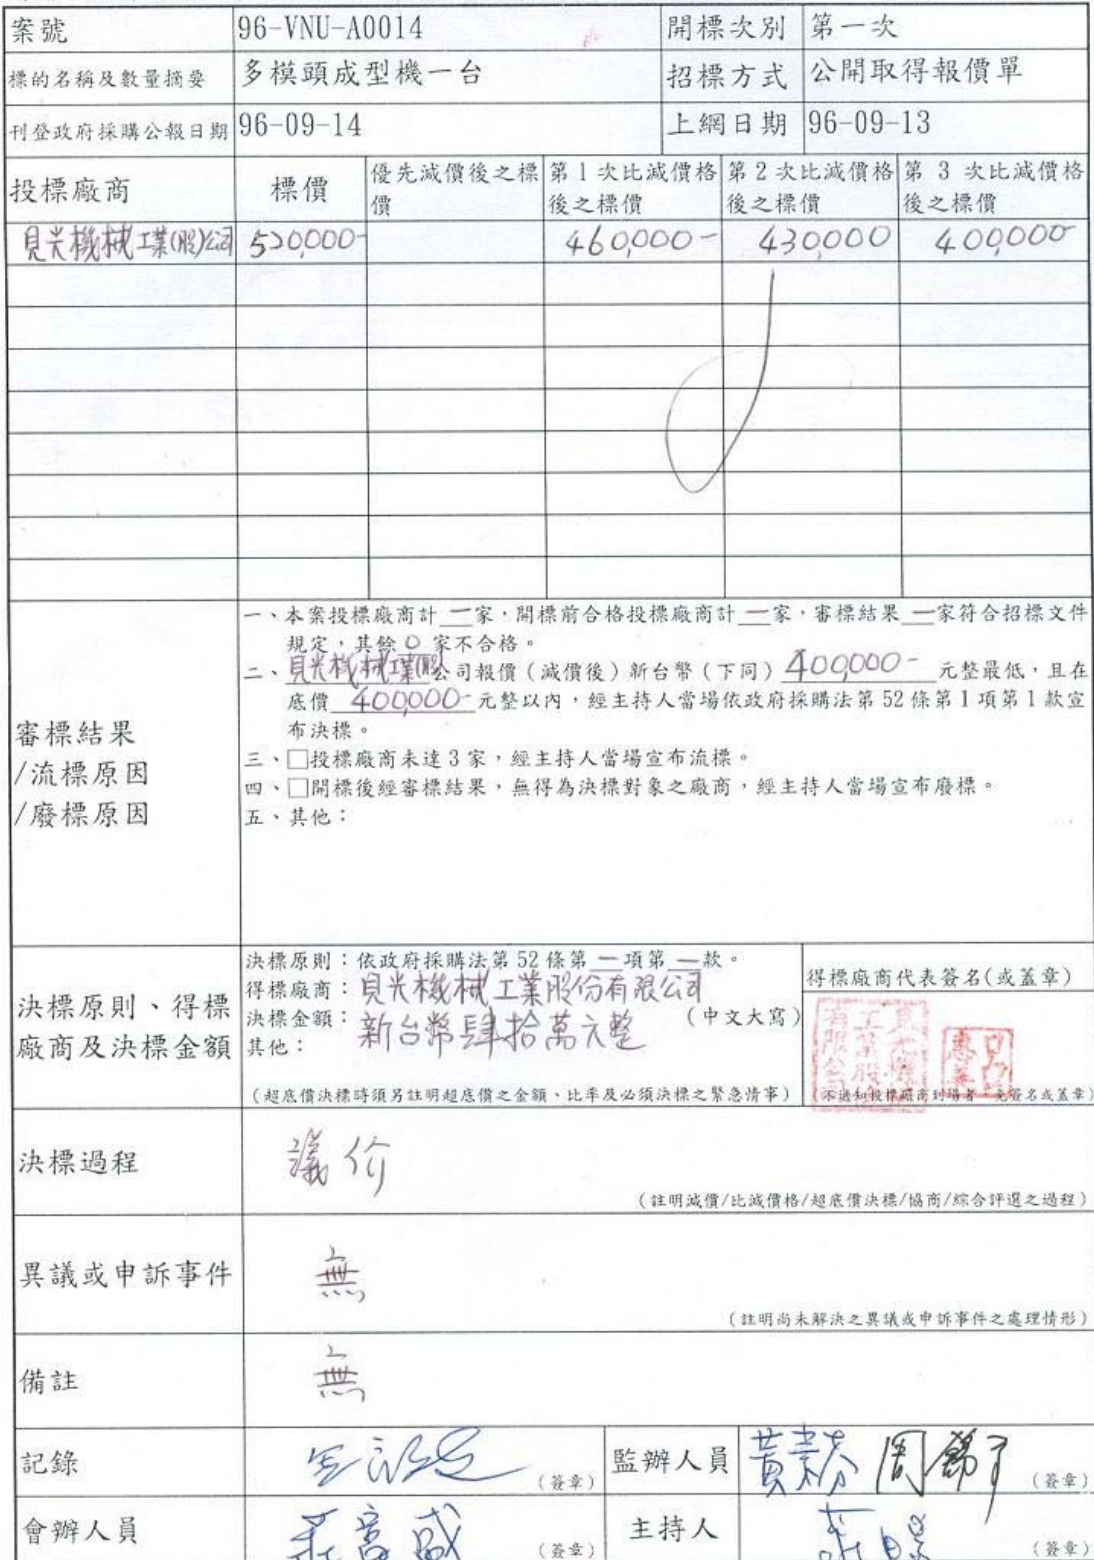 案號 96-VNU-A0014 開標次別 第一次
標的名稱及數量摘要 多模頭成型機一台 招標方式 公開取得報價單
刊登政府採購公報日期 96-09-14 上網日期 96-09-13
投標廠商 標價 優先減價後之標價 第1次比減價格後之標價 第2次比減價格後之標價 第 3 次比減價格後之標價
見光機械工業(股)公司 520,000- 460,000- 430,000 400,000-
審標結果
/流標原因
/廢標原因
一、本案投標廠商計 一 家，開標前合格投標廠商計 一 家，審標結果 一 家符合招標文件
規定，其餘 0 家不合格。
二、見光機械工業(股)公司報價(減價後)新台幣(下同) 400,000- 元整最低，且在
底價 400,000- 元整以內，經主持人當場依政府採購法第52條第1項第1款宣
布決標。
三、□投標廠商未達3家，經主持人當場宣布流標。
四、□開標後經審標結果，無得為決標對象之廠商，經主持人當場宣布廢標。
五、其他：
決標原則、得標
廠商及決標金額
決標原則：依政府採購法第52條第 一 項第 一 款。
得標廠商：見光機械工業股份有限公司
決標金額：新台幣肆拾萬元整 (中文大寫)
其他：
(超底價決標時須另註明超底價之金額、比率及必須決標之緊急情事)
得標廠商代表簽名(或蓋章)
(不通知投標廠商到場者 免簽名或蓋章)
決標過程 議价
(註明減價/比減價格/超底價決標/協商/綜合評選之過程)
異議或申訴事件 無
(註明尚未解決之異議或申訴事件之處理情形)
備註 無
記錄 (簽章) 監辦人員 (簽章)
會辦人員 (簽章) 主持人 (簽章)